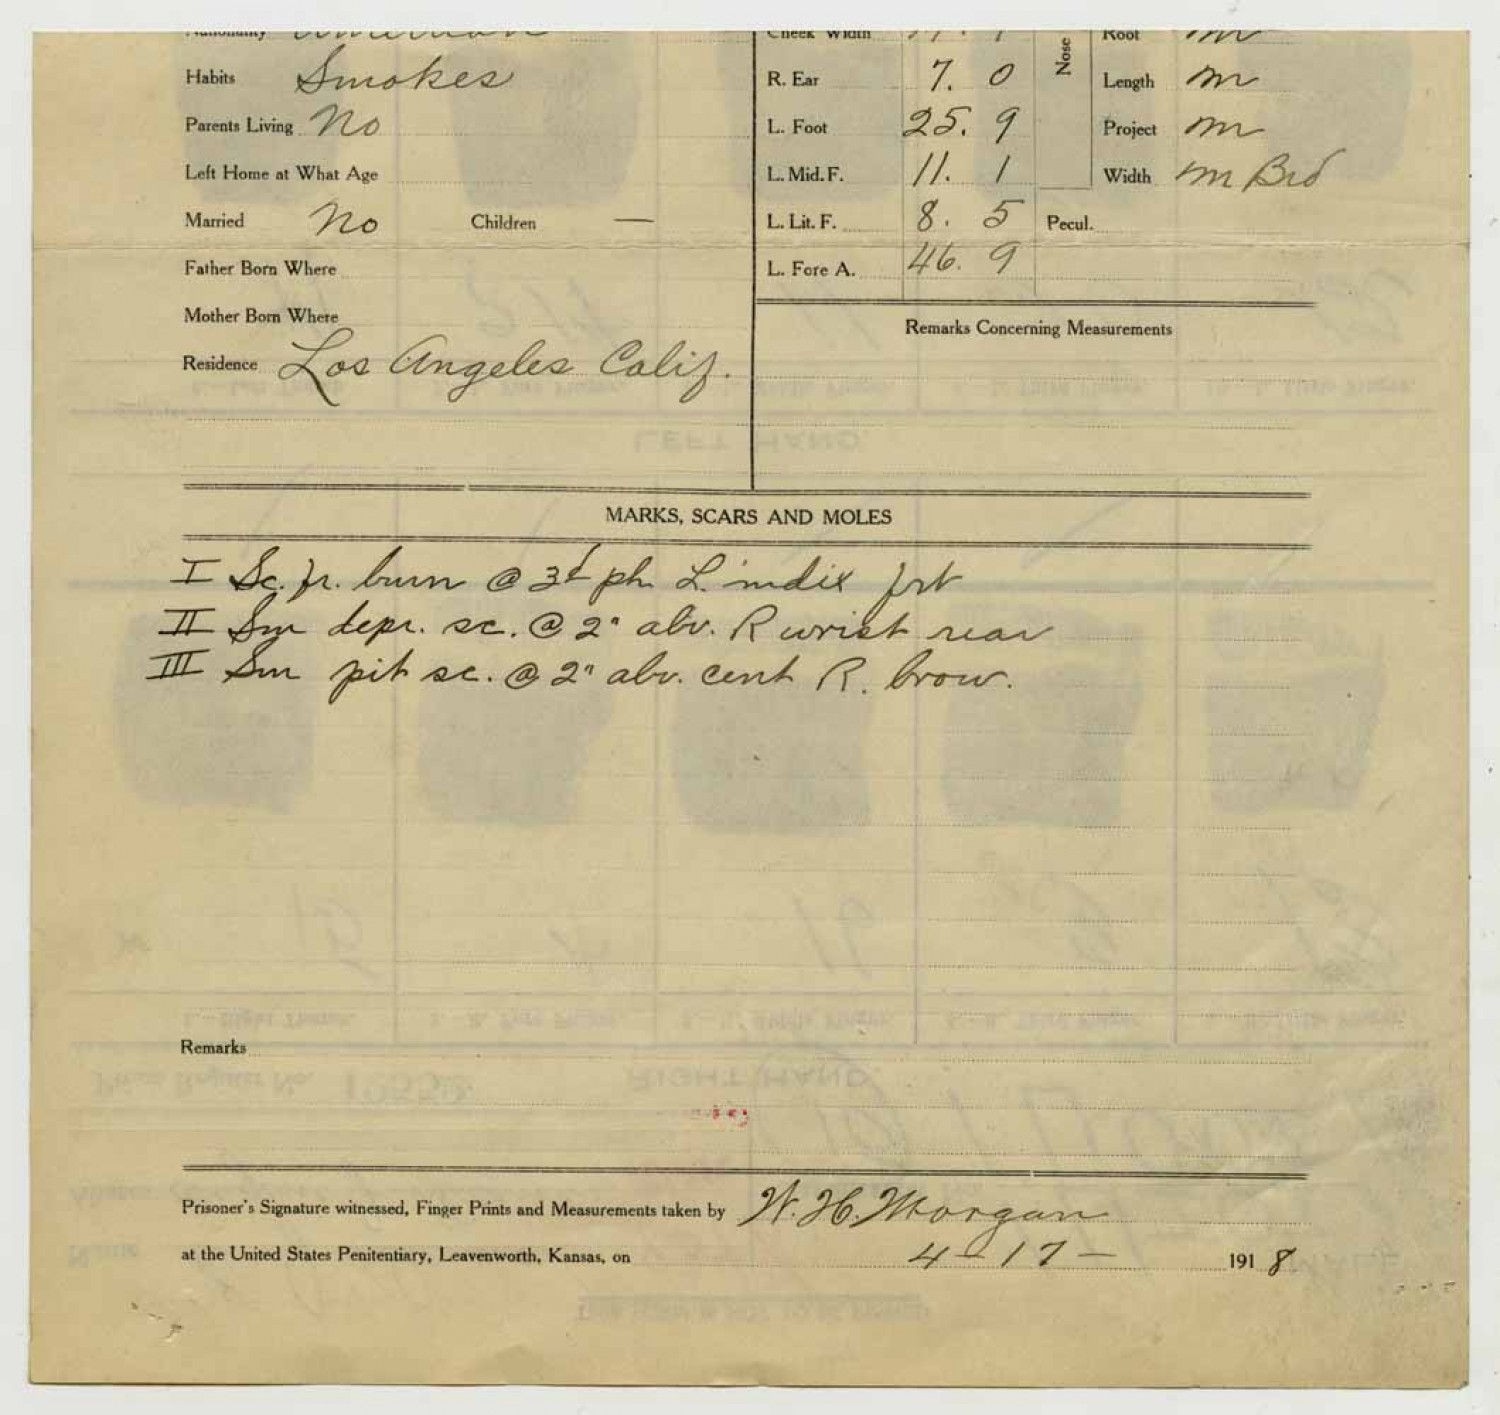 Nationality American
Habits Smokes
Parents Living No
Left Home at What Age
Married No Children —
Father Born Where
Mother Born Where
Residence Los Angeles Calif.
Cheek Width
R. Ear 7. 0
L. Foot 25. 9
L. Mid. F. 11. 1
L. Lit. F. 8. 5
L. Fore A. 46. 9
Nose
Root m
Length m
Project m
Width m Brd
Pecul.
Remarks Concerning Measurements
MARKS, SCARS AND MOLES
I Sc. fr. burn @ 3d ph L. index frt
II Sm depr. sc. @ 2" abv. R wrist rear
III Sm pit sc. @ 2" abv. cent R. brow.
Remarks
Prisoner's Signature witnessed, Finger Prints and Measurements taken by W. H. Morgan
at the United States Penitentiary, Leavenworth, Kansas, on 4-17- 1918
LEFT HAND
RIGHT HAND